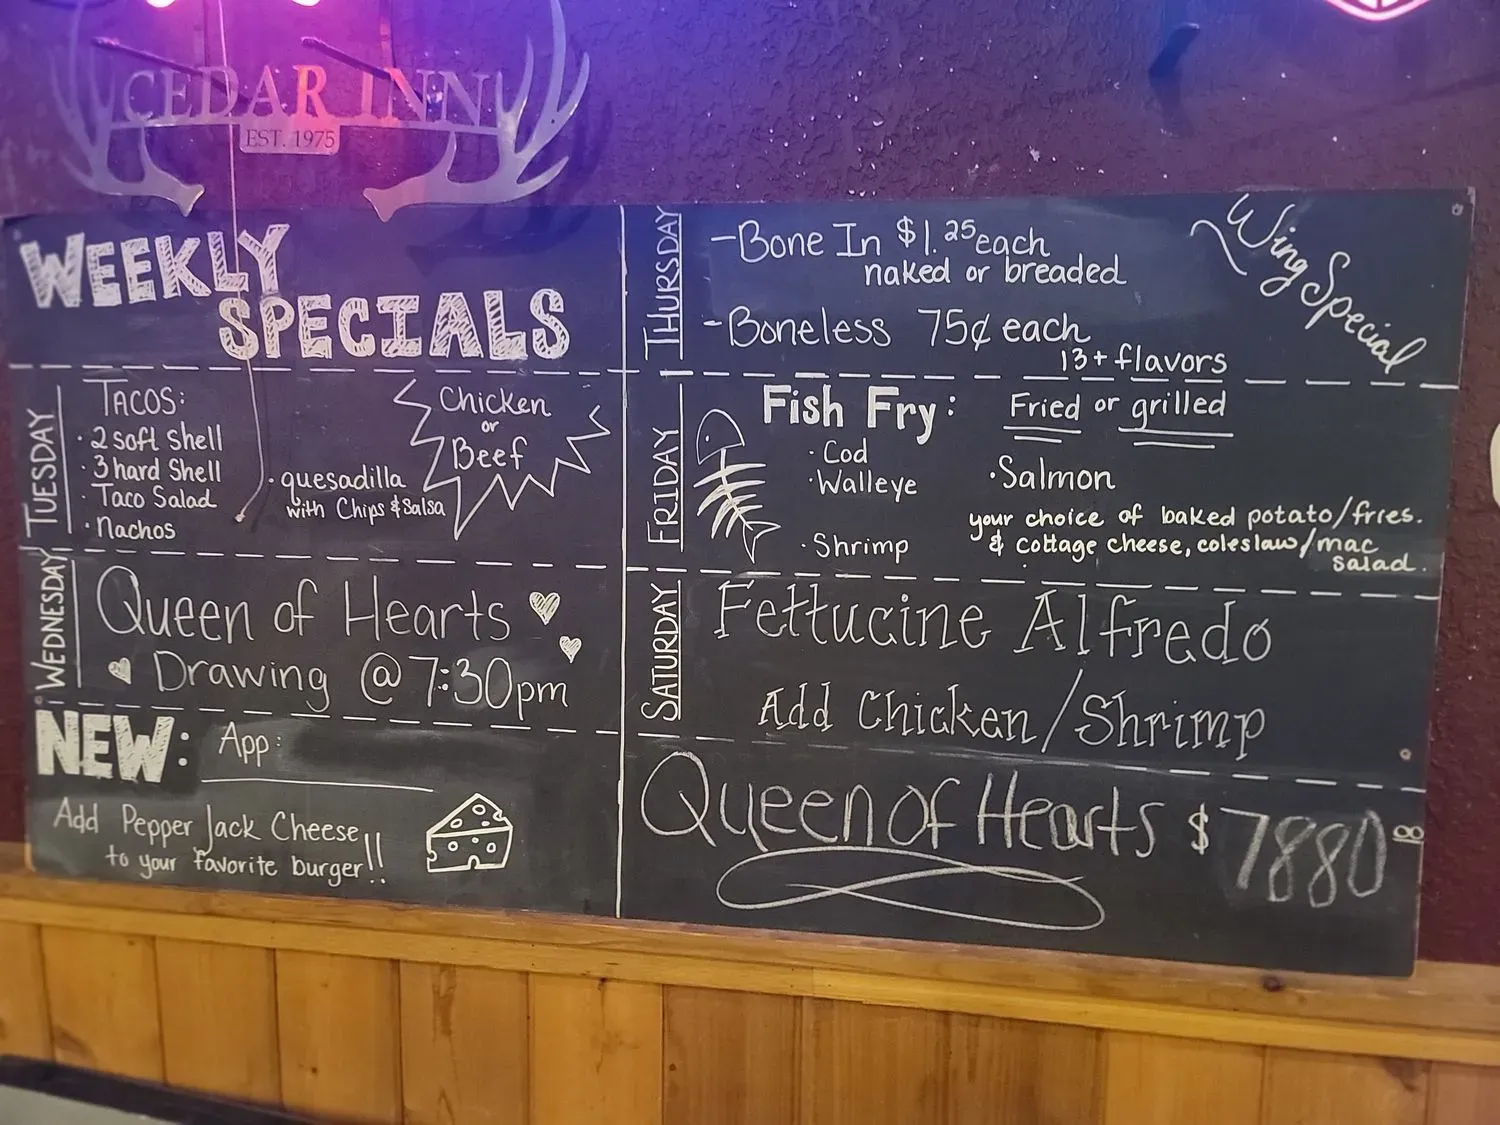 CEDAR INN
EST. 1975
WEEKLY
SPECIALS
TUESDAY
TACOS:
· 2 soft shell
· 3 hard Shell
· Taco Salad
· Nachos
· quesadilla
with Chips & Salsa
Chicken
or
Beef
WEDNESDAY
Queen of Hearts
Drawing @ 7:30pm
NEW: App:
Add Pepper Jack Cheese
to your favorite burger!!
THURSDAY
- Bone In $1.25 each
naked or breaded
- Boneless 75¢ each
13+ flavors
Wing Special
FRIDAY
Fish Fry: Fried or grilled
· Cod
· Walleye
· Shrimp
· Salmon
your choice of baked potato/fries.
& cottage cheese, coleslaw/mac
salad.
SATURDAY
Fettucine Alfredo
Add Chicken/Shrimp
Queen of Hearts $7880 00